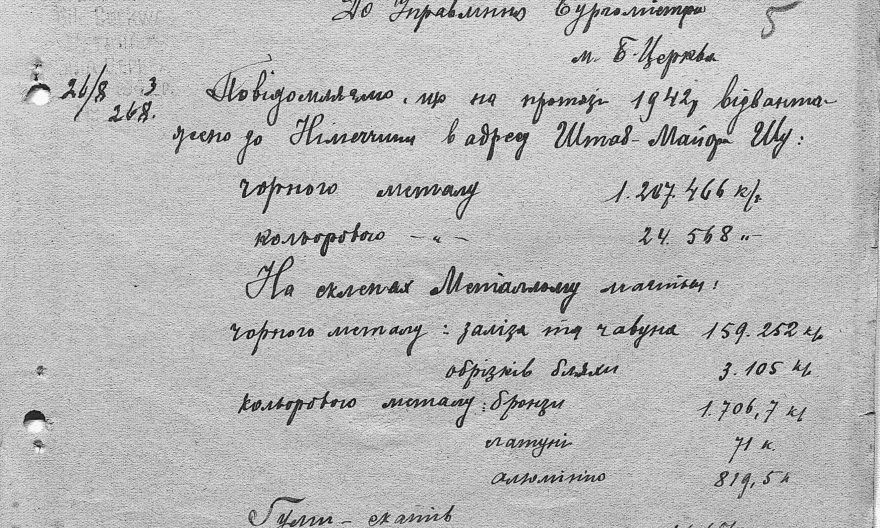 До Управління Бургомістра
5
м. Б-Церква
26/8 3
268.
Повідомляємо, що на протязі 1942 р відванта-
жено до Німеччини в адрес Штаб-Майор Шу:
чорного металу 1.207.466 кг.
кольорового -„- 24.568 „-
На складах Металлому мається:
чорного металу: заліза та чавуна 159.252 кг
обрізків бляхи 3.105 кг
кольорового металу: бронзи 1.706,7 кг
латуні 71 к.
алюмінію 819,5 к
Гуми - скатів